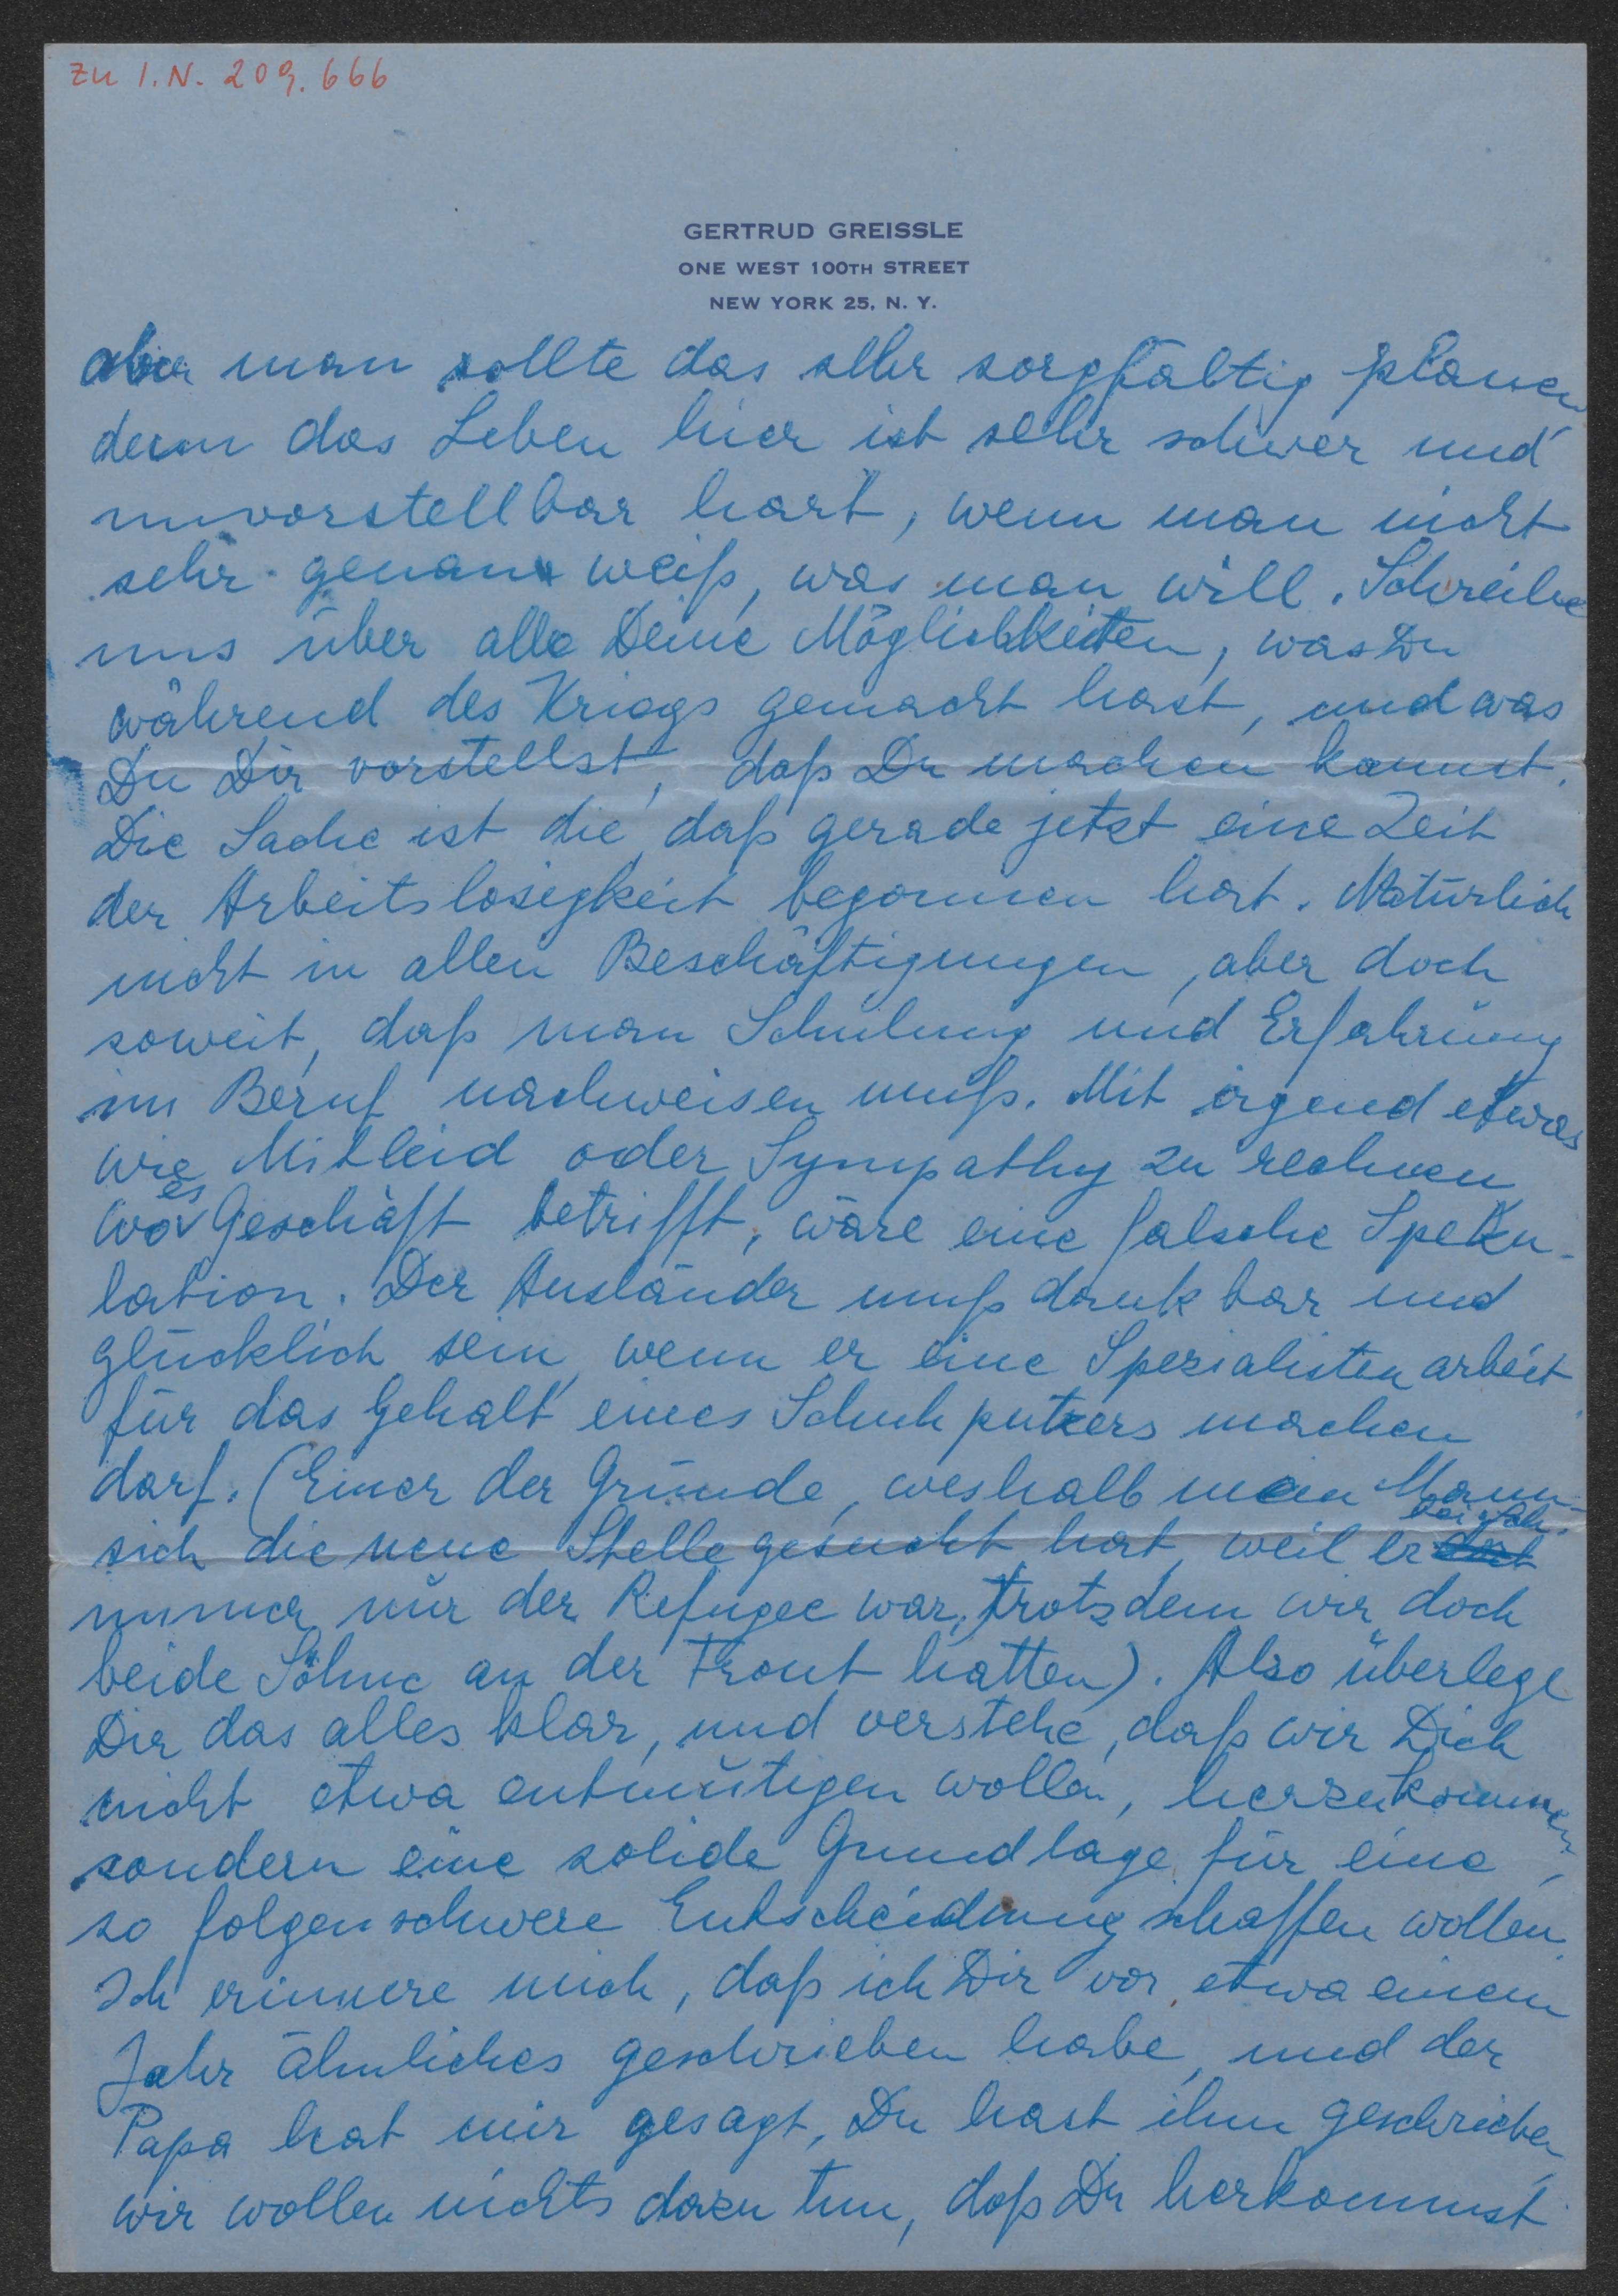 zu I.N. 209.666
GERTRUD GREISSLE
ONE WEST 100TH STREET
NEW YORK 25, N. Y.
aber man sollte das sehr sorgfältig planen
denn das Leben hier ist sehr schwer und
unvorstellbar hart, wenn man nicht
sehr genau weiß, was man will. Schreibe
uns über alle Deine Möglichkeiten, was Du
während des Kriegs gemacht hast, und was
Du Dir vorstellst, daß Du machen kannst.
Die Sache ist die, daß gerade jetzt eine Zeit
der Arbeitslosigkeit begonnen hat. Natürlich
nicht in allen Beschäftigungen, aber doch
soweit, daß man Schulung und Erfahrung
im Beruf nachweisen muß. Mit irgend etwas
wie Mitleid oder Sympathy zu rechnen
wo es Geschäft betrifft, wäre eine falsche Speku-
lation. Der Ausländer muß dankbar und
glücklich sein, wenn er eine Spezialistenarbeit
für das Gehalt eines Schuhputzers machen
darf. (Einer der Gründe, weshalb mein Mann
sich die neue Stelle gesucht hat, weil er bei Sch.
immer nur der Refugee war, trotzdem wir doch
beide Söhne an der Front hatten). Also überlege
Dir das alles klar, und verstehe, daß wir Dich
nicht etwa entmutigen wollen, herzukommen,
sondern eine solide Grundlage für eine
so folgenschwere Entscheidung schaffen wollen.
Ich erinnere mich, daß ich Dir vor etwa einem
Jahr ähnliches geschrieben habe, und der
Papa hat mir gesagt, Du hast ihm geschrieben,
wir wollen nichts dazu tun, daß Du herkommst